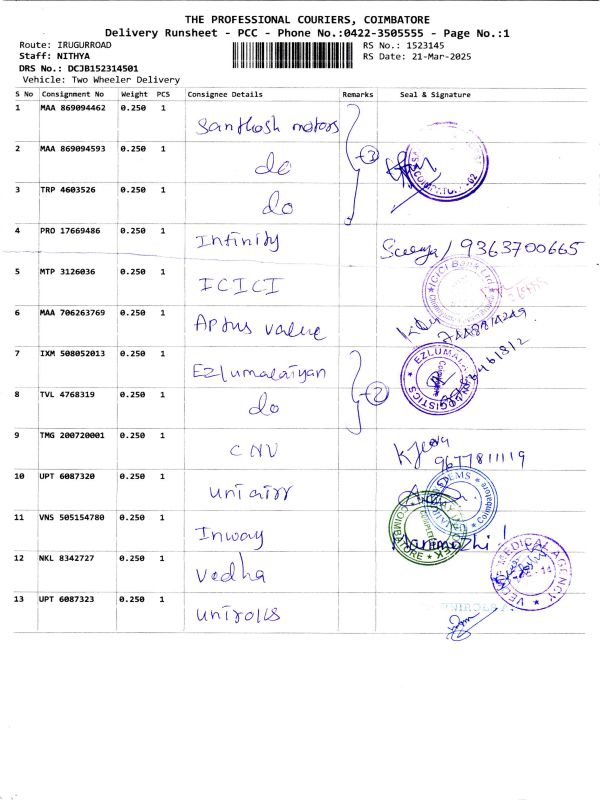 THE PROFESSIONAL COURIERS, COIMBATORE
Delivery Runsheet - PCC - Phone No.:0422-3505555 - Page No.:1
Route: IRUGURROAD
RS No.: 1523145
Staff: NITHYA
RS Date: 21-Mar-2025
DRS No.: DCJB152314501
Vehicle: Two Wheeler Delivery
S No Consignment No Weight PCS Consignee Details Remarks Seal & Signature
1 MAA 869094462 0.250 1 Santhosh motors
2 MAA 869094593 0.250 1 do 3
3 TRP 4603526 0.250 1 do
4 PRO 17669486 0.250 1 Infinity 9363700665
5 MTP 3126036 0.250 1 ICICI ICICI Bank Ltd
6 MAA 706263769 0.250 1 Aptus value
7 IXM 508052013 0.250 1 Ezlumalaiyan
8 TVL 4768319 0.250 1 do 2
9 TMG 200720001 0.250 1 CNV 9677811119
10 UPT 6087320 0.250 1 uniairr Coimbatore
11 VNS 505154780 0.250 1 Inway COIMBATORE
12 NKL 8342727 0.250 1 Vedha MEDICAL AGENCY
13 UPT 6087323 0.250 1 unirolls